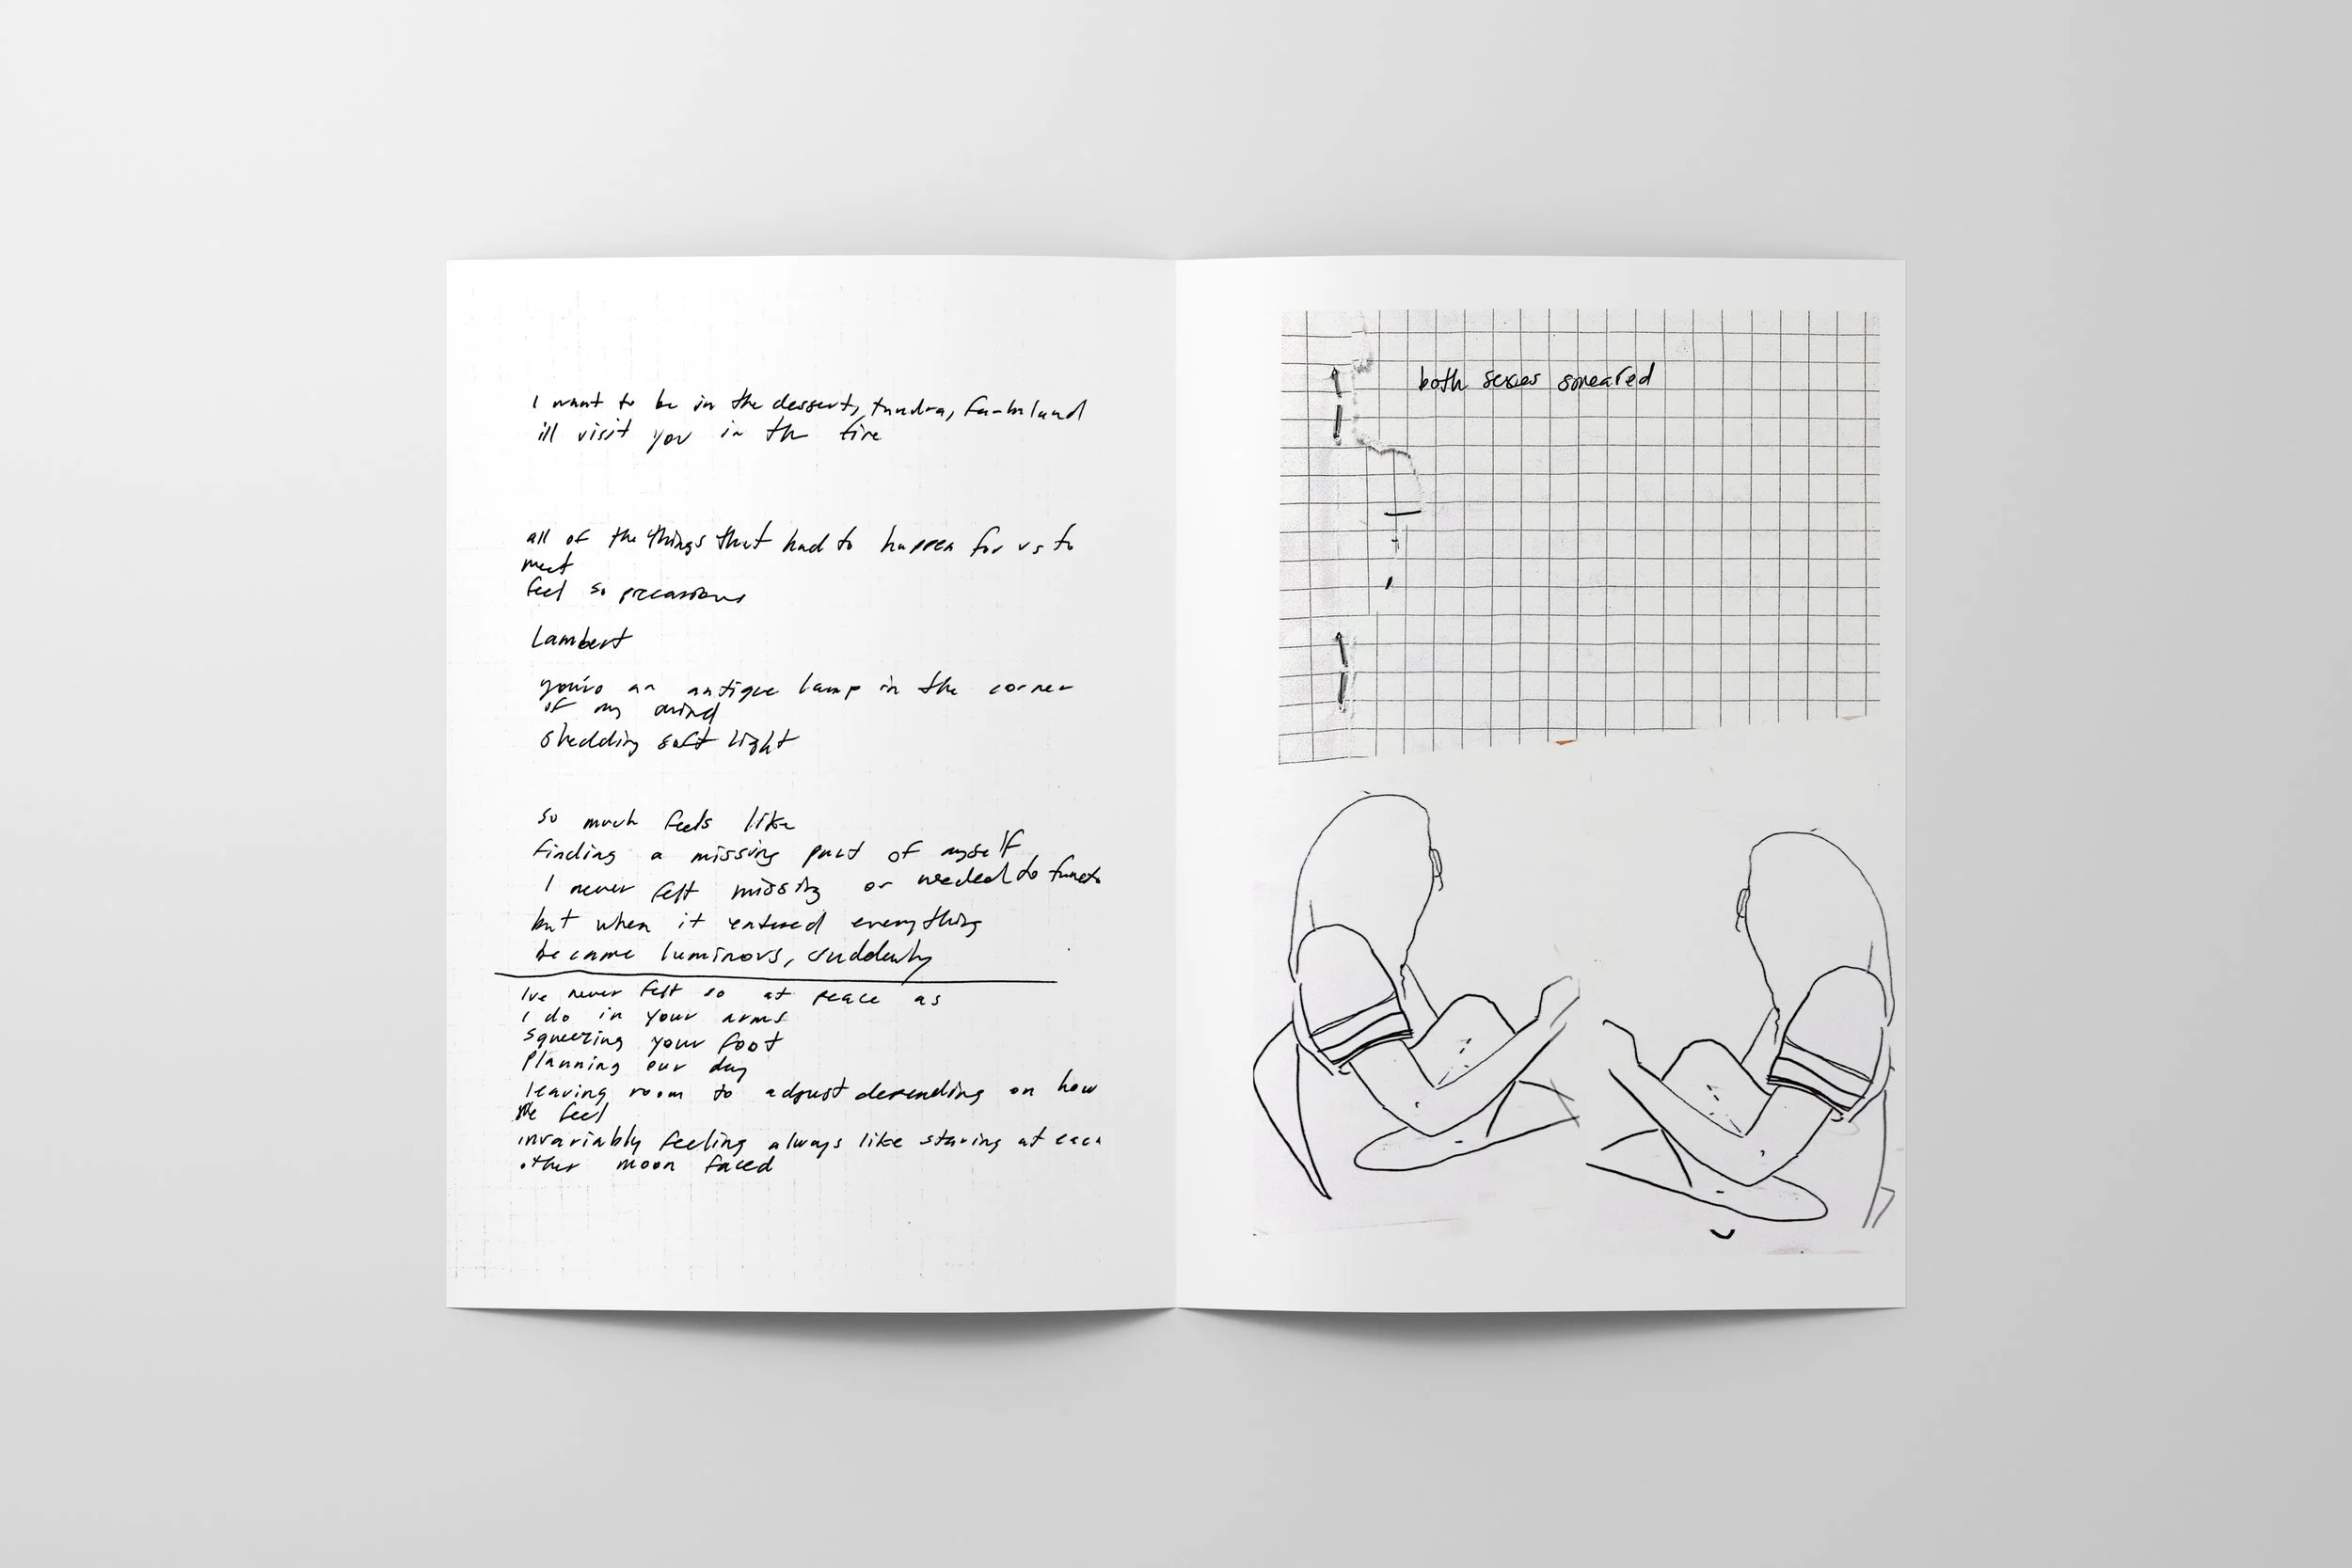 I want to be in the dessert, tundra, farmland
ill visit you in the fire
all of the things that had to happen for us to
meet
feel so precarious
Lambert
you're an antique lamp in the corner
of my mind
shedding soft light
so much feels like
finding a missing part of myself
I never felt missing or needed to
but when it entered everything
became luminous, suddenly
Ive never felt so at peace as
I do in your arms
squeezing your foot
planning our day
leaving room to adjust depending on how
we feel
invariably feeling always like staring at each
other moon faced
both sexes smeared